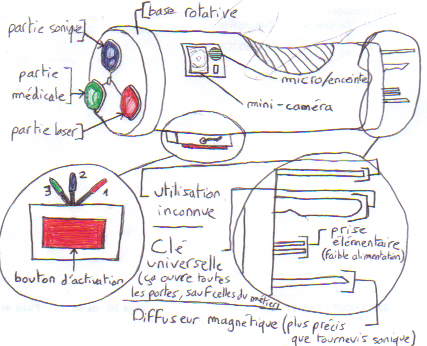 base rotative
partie sonique
partie
médicale
partie laser
micro/enceinte
mini-caméra
3
2
1
bouton d'activation
utilisation
inconnue
Clé
universelle
(ça ouvre toutes
les portes, sauf celles du métier)
prise
élémentaire
(faible alimentation)
Diffuseur magnétique (plus précis
que tournevis sonique)